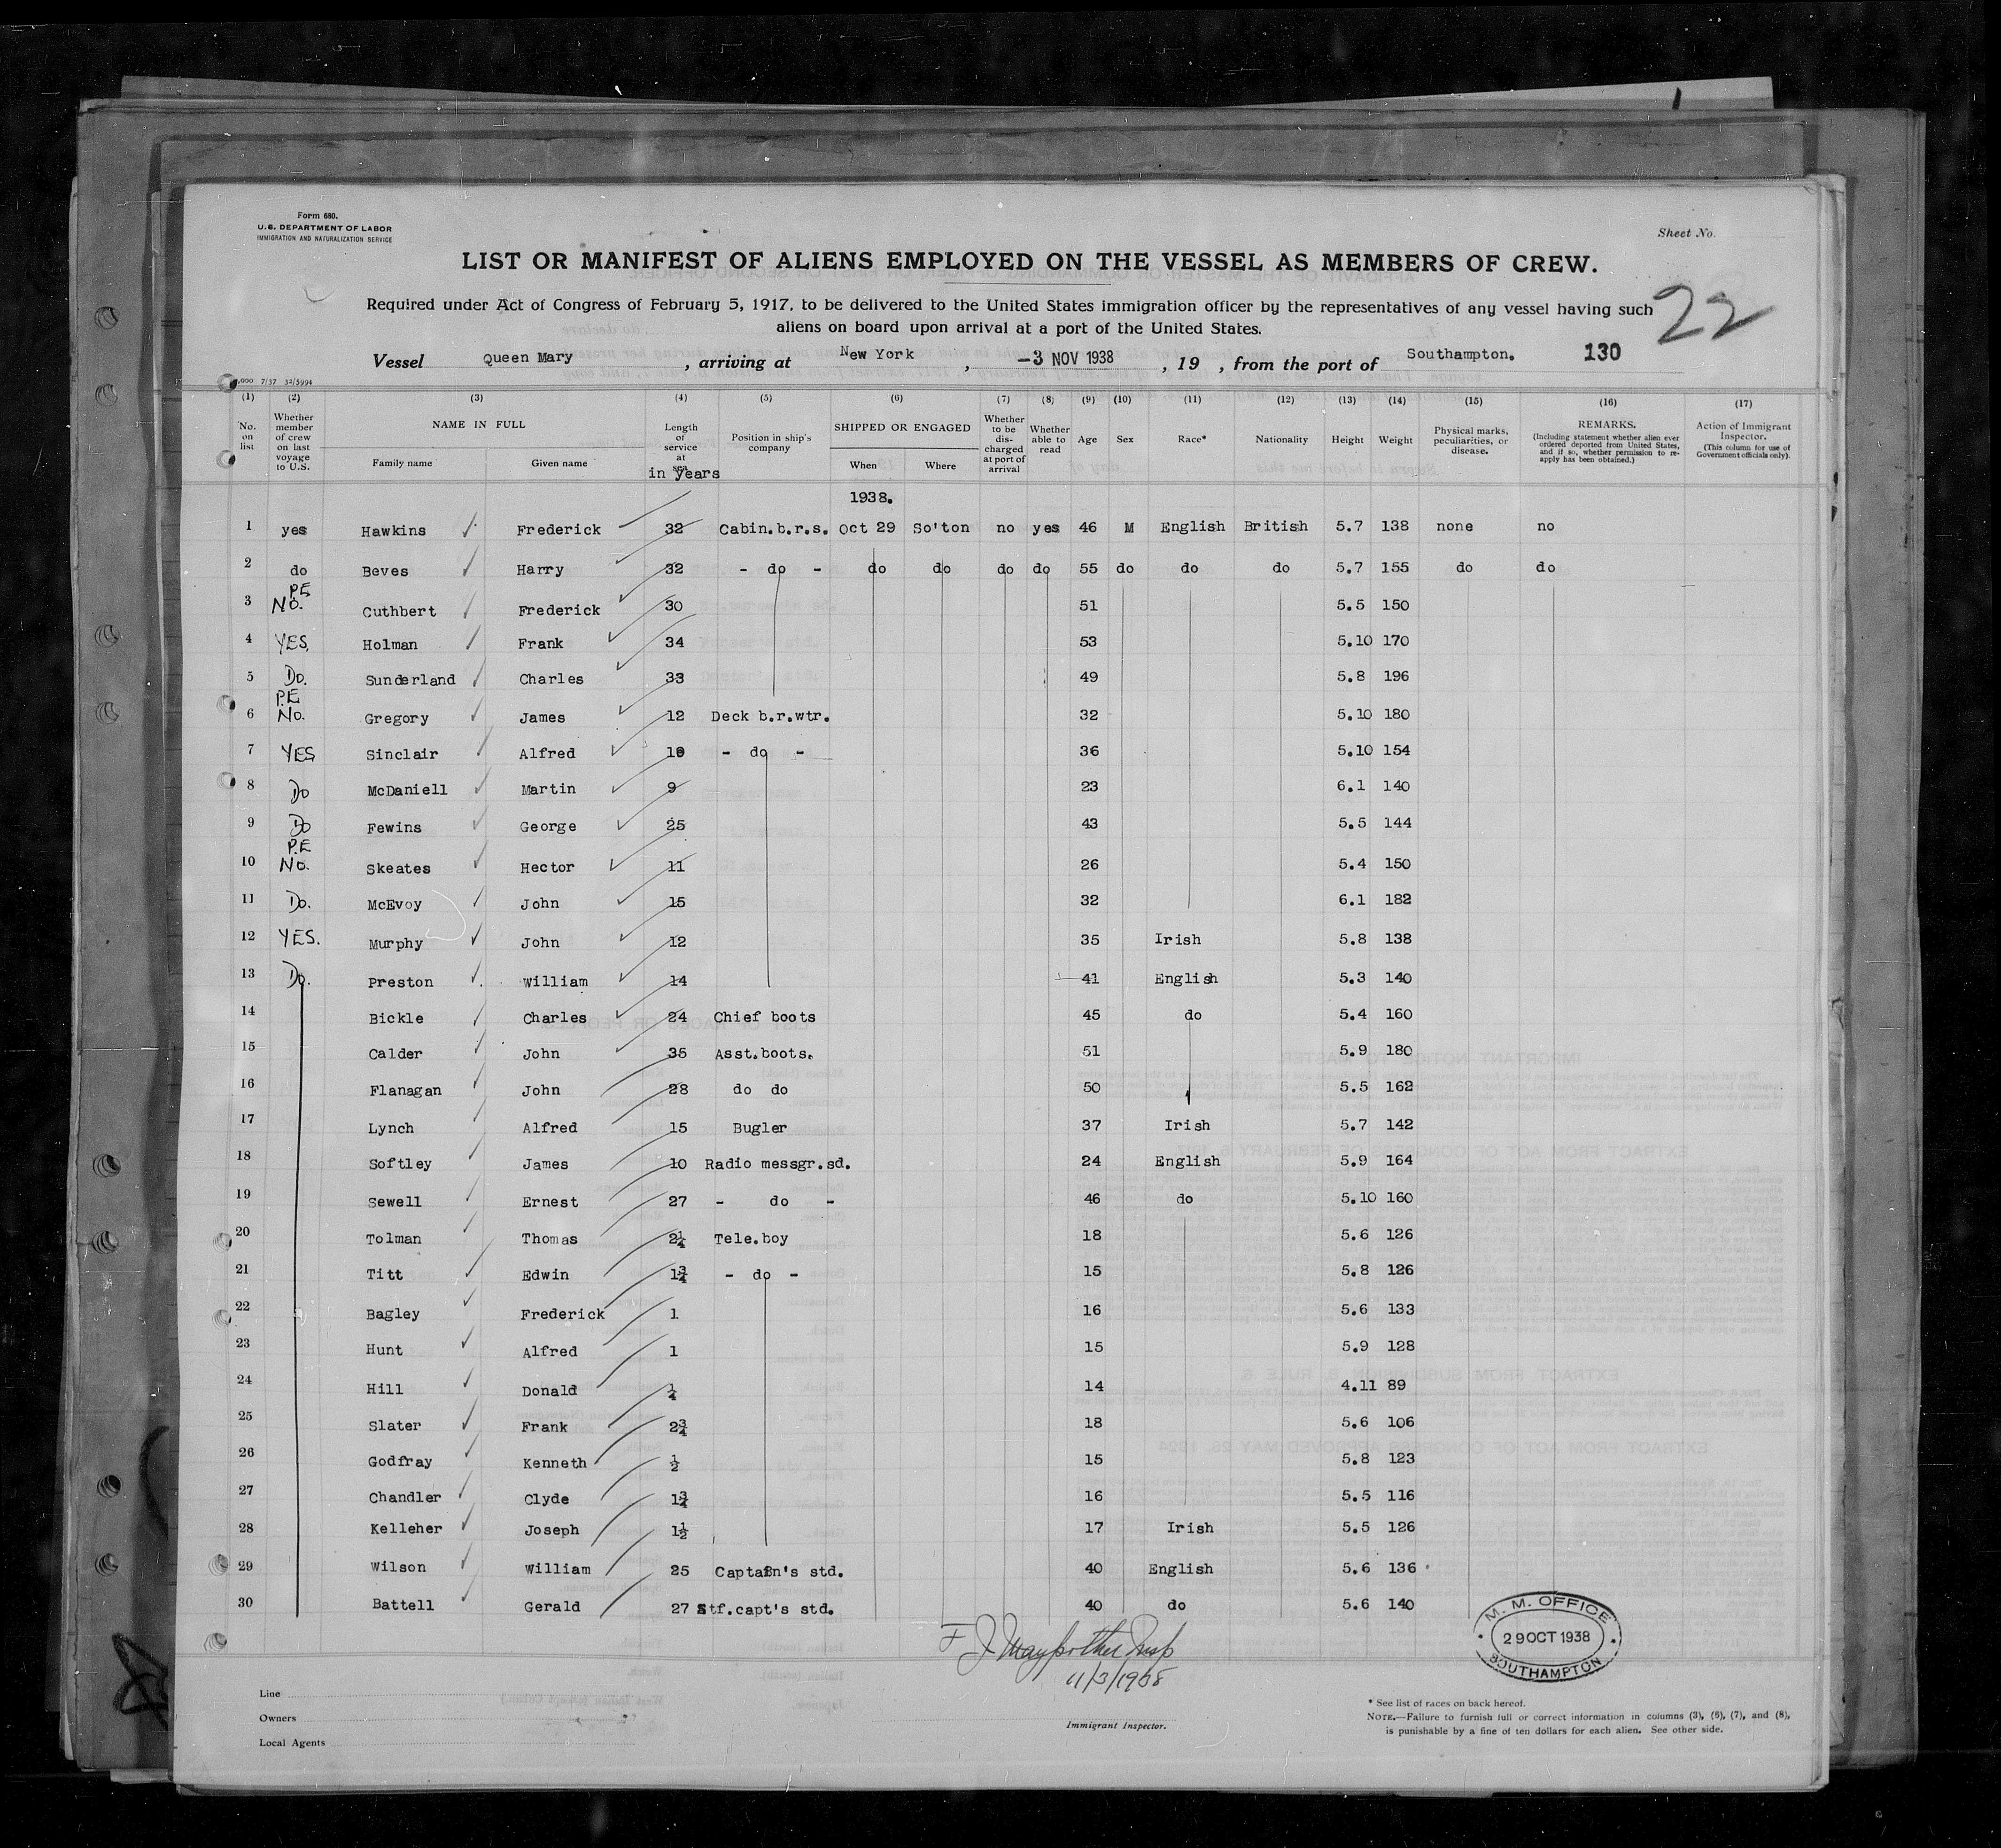 Form 680.
U.S. DEPARTMENT OF LABOR
IMMIGRATION AND NATURALIZATION SERVICE
Sheet No.
LIST OR MANIFEST OF ALIENS EMPLOYED ON THE VESSEL AS MEMBERS OF CREW.
Required under Act of Congress of February 5, 1917, to be delivered to the United States immigration officer by the representatives of any vessel having such
aliens on board upon arrival at a port of the United States.
22
Vessel Queen Mary , arriving at New York , -3 NOV 1938 , 19 , from the port of Southampton. 130
,000 7/37 32/5994
(1) (2) (3) (4) (5) (6) (7) (8) (9) (10) (11) (12) (13) (14) (15) (16) (17)
No. on list Whether member of crew on last voyage to U.S. NAME IN FULL Family name Given name Length of service at sea in years Position in ship's company SHIPPED OR ENGAGED When Where Whether to be discharged at port of arrival Whether able to read Age Sex Race* Nationality Height Weight Physical marks, peculiarities, or disease. REMARKS. (Including statement whether alien ever ordered deported from United States, and if so, whether permission to reapply has been obtained.) Action of Immigrant Inspector. (This column for use of Government officials only).
1938.
1 yes Hawkins Frederick 32 Cabin.b.r.s. Oct 29 So'ton no yes 46 M English British 5.7 138 none no
2 do Beves Harry 32 - do - do do do do 55 do do do 5.7 155 do do
3 PE No. Cuthbert Frederick 30 51 5.5 150
4 YES, Holman Frank 34 53 5.10 170
5 Do. Sunderland Charles 33 49 5.8 196
6 P.E No. Gregory James 12 Deck b.r.wtr. 32 5.10 180
7 YES Sinclair Alfred 19 - do - 36 5.10 154
8 Do McDaniell Martin 9 23 6.1 140
9 Do Fewins George 25 43 5.5 144
10 P.E No. Skeates Hector 11 26 5.4 150
11 Do. McEvoy John 15 32 6.1 182
12 YES. Murphy John 12 35 Irish 5.8 138
13 Do. Preston William 14 41 English 5.3 140
14 Bickle Charles 24 Chief boots 45 do 5.4 160
15 Calder John 35 Asst.boots. 51 5.9 180
16 Flanagan John 28 do do 50 5.5 162
17 Lynch Alfred 15 Bugler 37 Irish 5.7 142
18 Softley James 10 Radio messgr.sd. 24 English 5.9 164
19 Sewell Ernest 27 - do - 46 do 5.10 160
20 Tolman Thomas 2¼ Tele.boy 18 5.6 126
21 Titt Edwin 1¾ - do - 15 5.8 126
22 Bagley Frederick 1 16 5.6 133
23 Hunt Alfred 1 15 5.9 128
24 Hill Donald ¼ 14 4.11 89
25 Slater Frank 2¾ 18 5.6 106
26 Godfray Kenneth ½ 15 5.8 123
27 Chandler Clyde 1¾ 16 5.5 116
28 Kelleher Joseph 1½ 17 Irish 5.5 126
29 Wilson William 25 Captain's std. 40 English 5.6 136
30 Battell Gerald 27 Stf.capt's std. 40 do 5.6 140
M. M. OFFICE
29 OCT 1938
SOUTHAMPTON
11/3/1938
Line
Owners
Local Agents
Immigrant Inspector.
* See list of races on back hereof.
NOTE.—Failure to furnish full or correct information in columns (3), (6), (7), and (8),
is punishable by a fine of ten dollars for each alien. See other side.